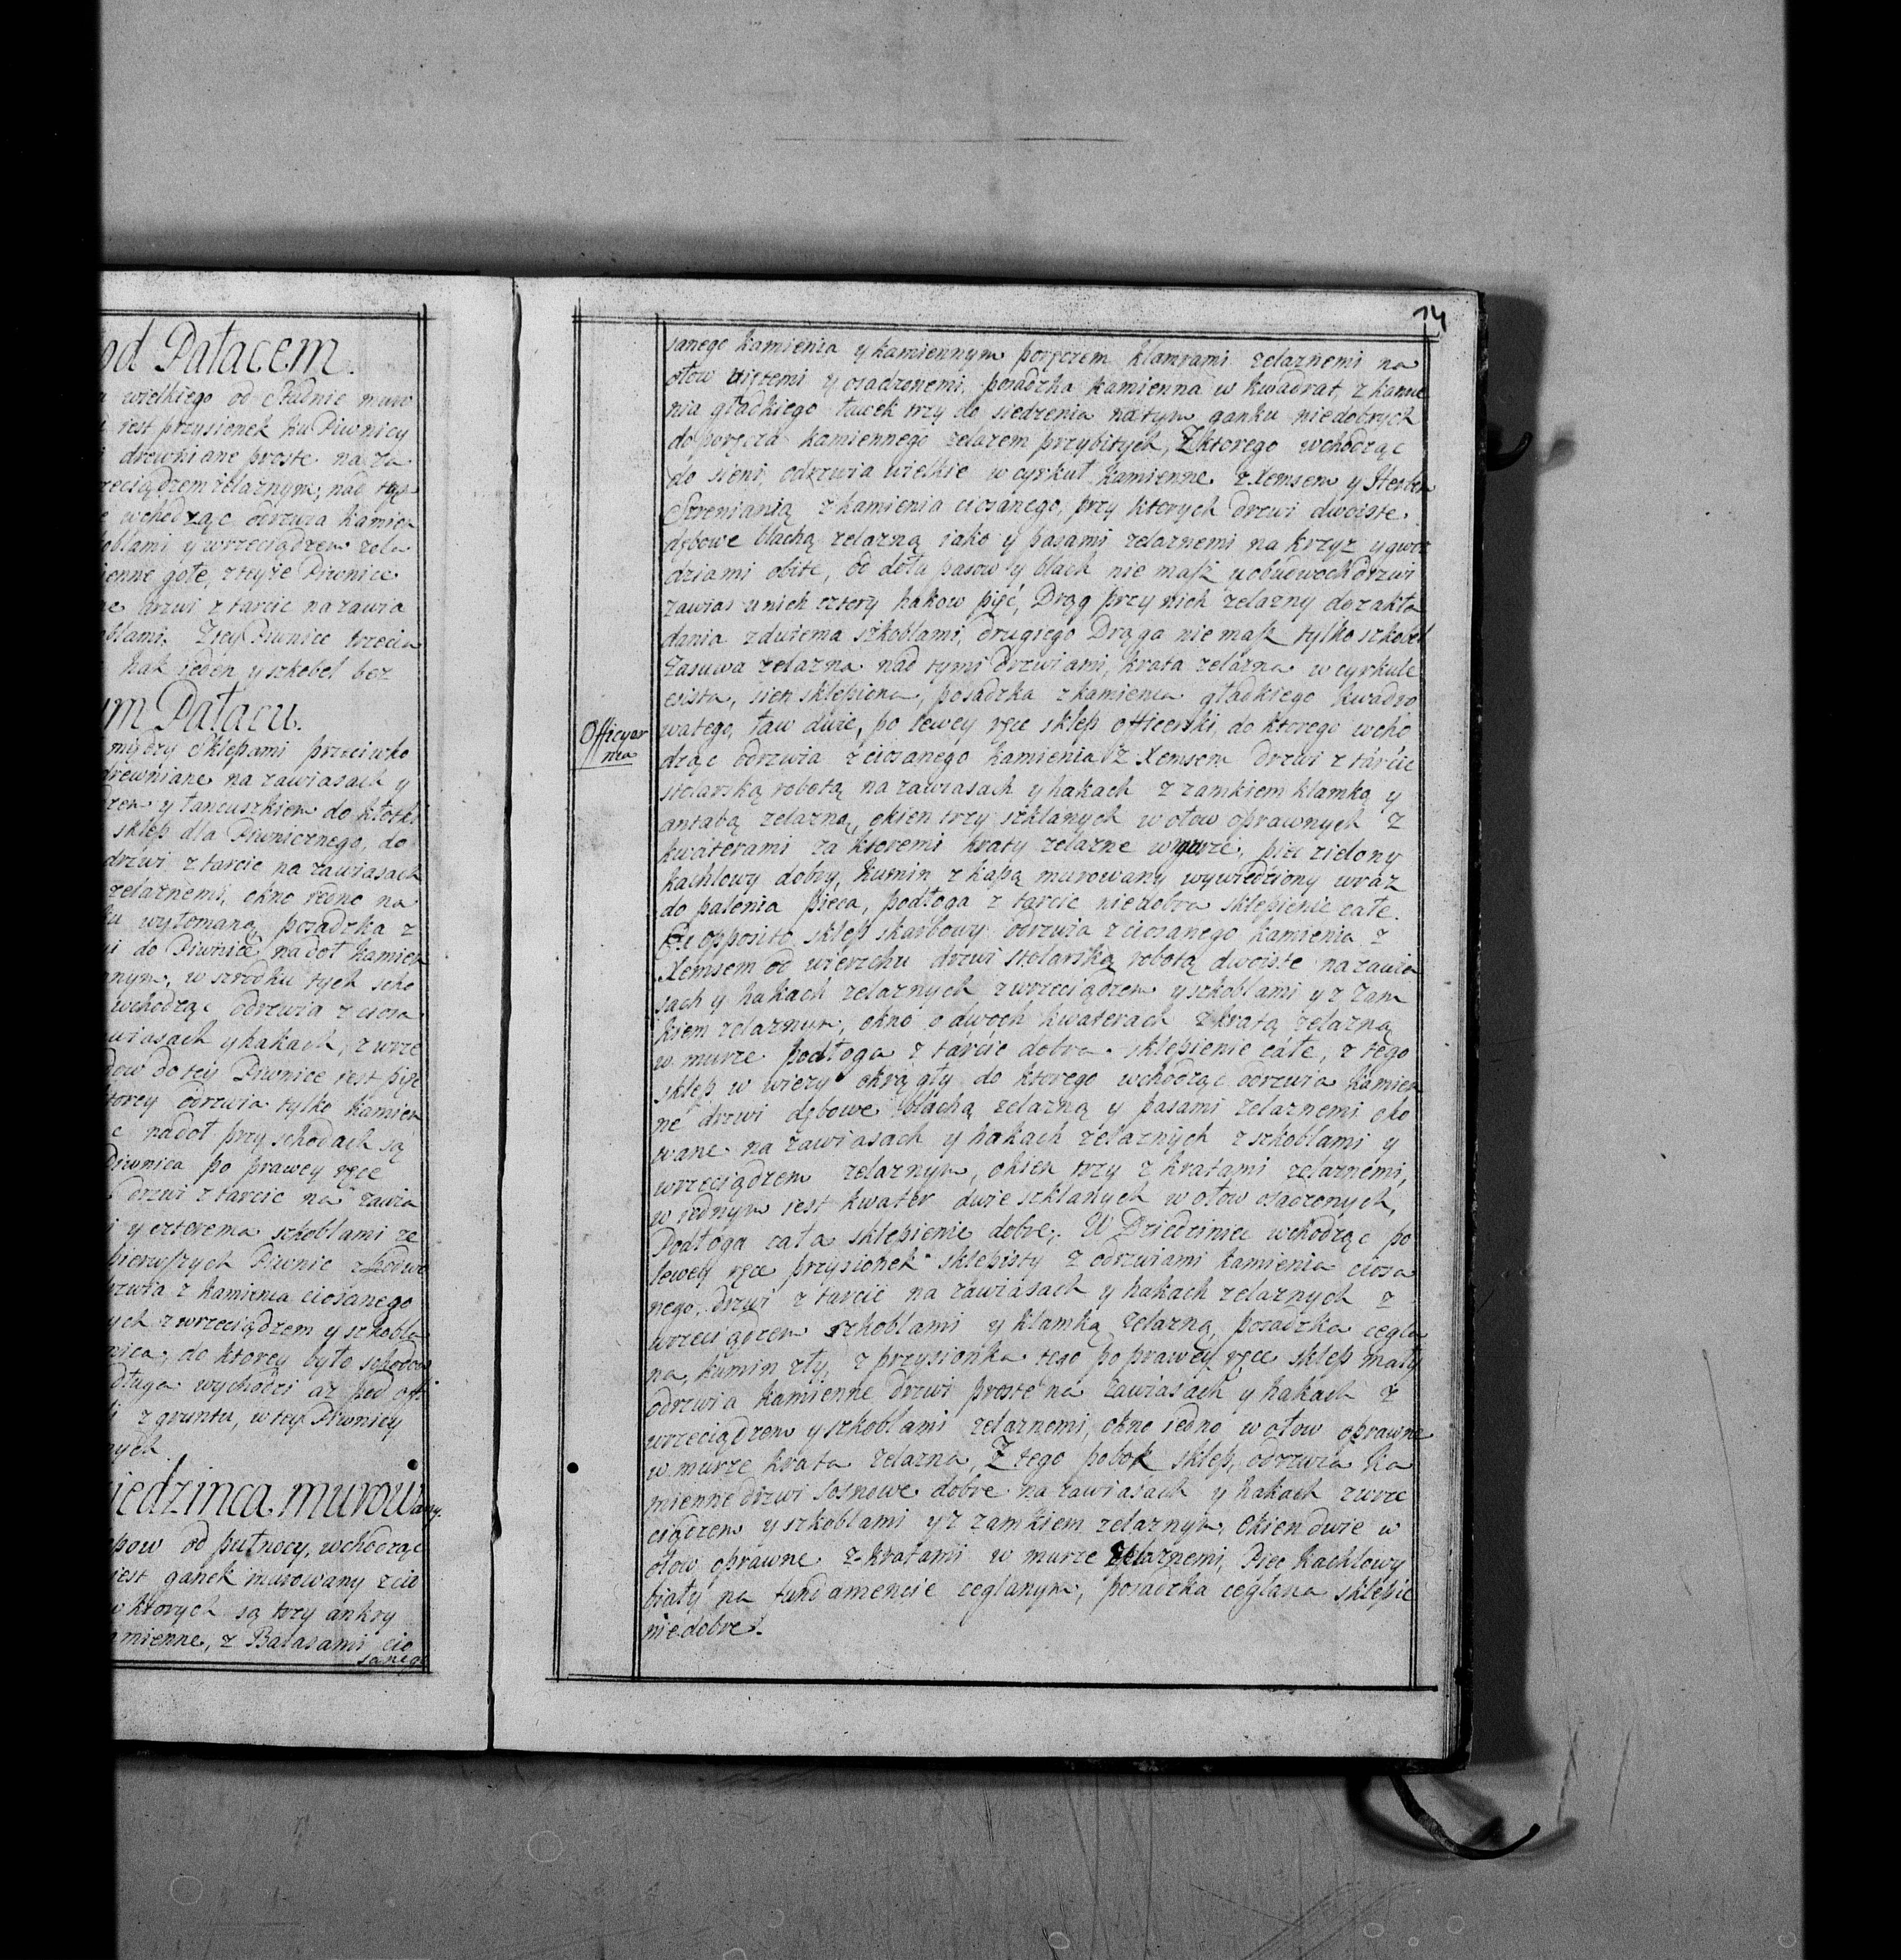 od Pałacem.
wielkiego od studnie muro
iest przysionek ku Piwnicy
drewniane proste na za
rzeciądzem żelaznym, nad tyſ
wchodząc odrzwia kamien
oblami y wrzeciądzem zela
ienne gołe, z teyże Piwnice
drzwi z tarcic na zawia
oblami. Z tey Piwnice trzecia
hak ieden y szkobel bez
m Pałacu.
między sklepami przeciwko
drewniane na zawiasach y
zem y łancuszkiem do kłotki
sklep dla Piwnicznego, do
drzwi z tarcic na zawiasach
zelaznemi, okno iedno na
wyłomaną, posadzka z
i do Piwnice na doł kamien
nnym, w srzodku tych scho
wchodząc odrzwia z ciosa
wiasach y hakach, z wrze
dow do tey Piwnice iest pięć
ktorey odrzwia tylko kamien
c nadoł przy schodach są
Piwnica po prawey ręce
drzwi z tarcic na zawia
i y czterema szkoblami ze
pierwszych Piwnic
drzwia z kamienia ciosanego
ych z wrzeciądzem y szkobla
nica, do ktorey było schodow
długa wychodzi aż pod offi
z gruntu, w tey Piwnicy
nych
iedzinca murowany.
epow od pułnocy, wchodząc
iest ganek murowany z cio
w ktorych są trzy ankry
amienne, z Balasami cio
sanego
14
sanego kamienia y kamiennym poręczem klamrami zelaznemi na
ołow więtemi y osadzonemi, posadzka kamienna w kwadrat, z kamie
nia gładkiego ławek trzy do siedzenia na tym ganku niedobrych
do poręcza kamiennego zelazem przybitych, Z ktorego wchodząc
do sieni, odrzwia wielkie w cyrkuł kamienne z Xemsem y Herbem
Szreniawą z kamienia ciosanego, przy ktorych drzwi dwoiste
dębowe blachą zelazną iako y pasami zelaznemi na krzyz y gwoz
dziami obite, od dołu pasow y blach nie masz u obudwoch drzwi
zawias u nich cztery hakow pięć, Drąg przy nich zelazny do zakła
dania z dwiema szkoblami, drugiego Drąga nie masz tylko szkobel
Zasuwa zelazna nad tymi drzwiami, krata zelazna w cyrkule
esista, sien sklepiona, posadzka z kamienia gładkiego kwadro
watego, ław dwie, po lewey ręce sklep officerski, do ktorego wcho
Officyer
nia
dząc odrzwia z ciosanego kamienia z Xemsem drzwi z tarcic
stolarską robotą na zawiasach y hakach z zamkiem klamką y
antabą zelazną, okien trzy szklanych w ołow oprawnych z
kwaterami za ktoremi kraty zelazne w murze, piec zielony
kachlowy dobry, kumin z kapą murowany wywiedziony wraz
do palenia pieca, podłoga z tarcic niedobra sklepienie całe.
Ex opposito sklep skarbowy odrzwia z ciosanego kamienia z
Xemsem od wierzchu drzwi stolarską robotą dwoiste na zawia
sach y hakach zelaznych z wrzeciądzem y szkoblami y z zam
kiem zelaznym, okno o dwoch kwaterach z kratą zelazną
w murze podłoga z tarcic dobra sklepienie całe, z tego
sklep w wiezy okrągły do ktorego wchodząc odrzwia kamien
ne drzwi dębowe blachą zelazną y pasami zelaznemi oko
wane na zawiasach y hakach zelaznych z szkoblami y
wrzeciądzem zelaznym, okien trzy z kratami zelaznemi,
w iednym iest kwater dwie szklanych w ołow osadzonych,
Podłoga cała sklepienie dobre. W Dziedziniec wchodząc po
lewey ręce przysionek sklepisty z odrzwiami kamienia ciosa
nego, drzwi z tarcic na zawiasach y hakach zelaznych z
wrzeciądzem szkoblami y klamką zelazną, posadzka cegla
na, kumin zły, z przysionka tego po prawey ręce sklep mały
odrzwia kamienne drzwi proste na zawiasach y hakach z
wrzeciądzem y szkoblami zelaznemi, okno iedno w ołow oprawne
w murze krata zelazna, Z tego pobok sklep, odrzwia ka
mienne drzwi sosnowe dobre na zawiasach y hakach z wrze
ciądzem y szkoblami y z zamkiem zelaznym, okien dwie w
ołow oprawne z kratami w murze zelaznemi, Piec kachlowy
biały na fundamencie ceglanym, posadzka ceglana sklepie
nie dobre.